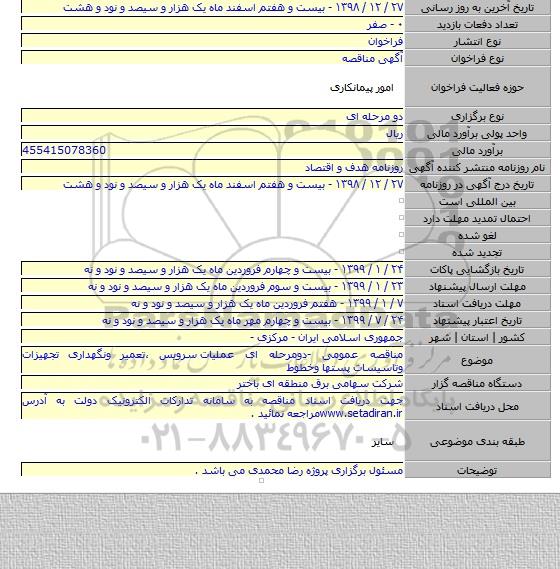 تاریخ آخرین به روز رسانی ۲۷ / ۱۲ / ۱۳۹۸ - بیست و هفتم اسفند ماه یک هزار و سیصد و نود و هشت
تعداد دفعات بازدید ۰ - صفر
نوع انتشار فراخوان
نوع فراخوان آگهی مناقصه
حوزه فعالیت فراخوان امور پیمانکاری
نوع برگزاری دو مرحله ای
واحد پولی برآورد مالی ریال
برآورد مالی 455415078360
نام روزنامه منتشر کننده آگهی روزنامه هدف و اقتصاد
تاریخ درج آگهی در روزنامه ۲۷ / ۱۲ / ۱۳۹۸ - بیست و هفتم اسفند ماه یک هزار و سیصد و نود و هشت
بین المللی است
احتمال تمدید مهلت دارد
لغو شده
تجدید شده
تاریخ بازگشایی پاکات ۲۴ / ۱ / ۱۳۹۹ - بیست و چهارم فروردین ماه یک هزار و سیصد و نود و نه
مهلت ارسال پیشنهاد ۲۳ / ۱ / ۱۳۹۹ - بیست و سوم فروردین ماه یک هزار و سیصد و نود و نه
مهلت دریافت اسناد ۷ / ۱ / ۱۳۹۹ - هفتم فروردین ماه یک هزار و سیصد و نود و نه
تاریخ اعتبار پیشنهاد ۲۴ / ۷ / ۱۳۹۹ - بیست و چهارم مهر ماه یک هزار و سیصد و نود و نه
کشور | استان | شهر جمهوری اسلامی ایران - مرکزی -
موضوع مناقصه عمومی -دومرحله ای عملیات سرویس ،تعمیر ونگهداری تجهیزات
وتاسیسات پستها وخطوط
دستگاه مناقصه گزار شرکت سهامی برق منطقه ای باختر
محل دریافت اسناد جهت دریافت اسناد مناقصه به سامانه تدارکات الکترونیک دولت به آدرس
www.setadiran.irمراجعه نمائید .
طبقه بندی موضوعی سایر
توضیحات مسئول برگزاری پروژه رضا محمدی می باشد .
۰۲۱-۸۸۳۴۹۶۷۰-۵